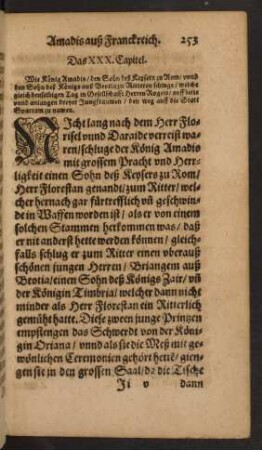 Amadis auß Franckreich. 253
Das XXX. Capitel.
Wie König Amadis / den Sohn deß Keysers zu Rom / vnnd
den Sohn deß Königs auß Beotia zu Rittern schluge / welche
gleich denselbigen Tag in Gesellschafft Herren Rogels / auff beim
vnnd anlangen dreyer Jungfrauwen / den weg auff die Statt
zu namen.
NIcht lang nach dem Herr Flo-
risel vnnd Daraide verreißt wa-
ren / schluge der König Amadis
mit grossem Pracht vnd Herr-
ligkeit einen Sohn deß Keysers zu Rom /
Herr Florestan genandt / zum Ritter / wel-
cher hernach gar fürtrefflich vñ geschwin-
de in Waffen worden ist / als er von einem
solchen Stammen herkommen was / daß
er nit anderst hette werden können / gleich-
fals schlug er zum Ritter einen vberauß
schönen jungen Herren / Briangem auß
Beotia / einen Sohn deß Königs Zair / vñ
der Königin Timbria / welcher dann nicht
minder als Herr Florestan ein Ritterlich
gemüht hatte. Diese zween junge Prinzen
empfiengen das Schwerdt von der Köni-
gin Oriana / vnnd als sie die Meß mit ge-
wönlichen Ceremonien gehört hett / gien-
gen sie in den grossen Saal / da die Tische
Ji v dann